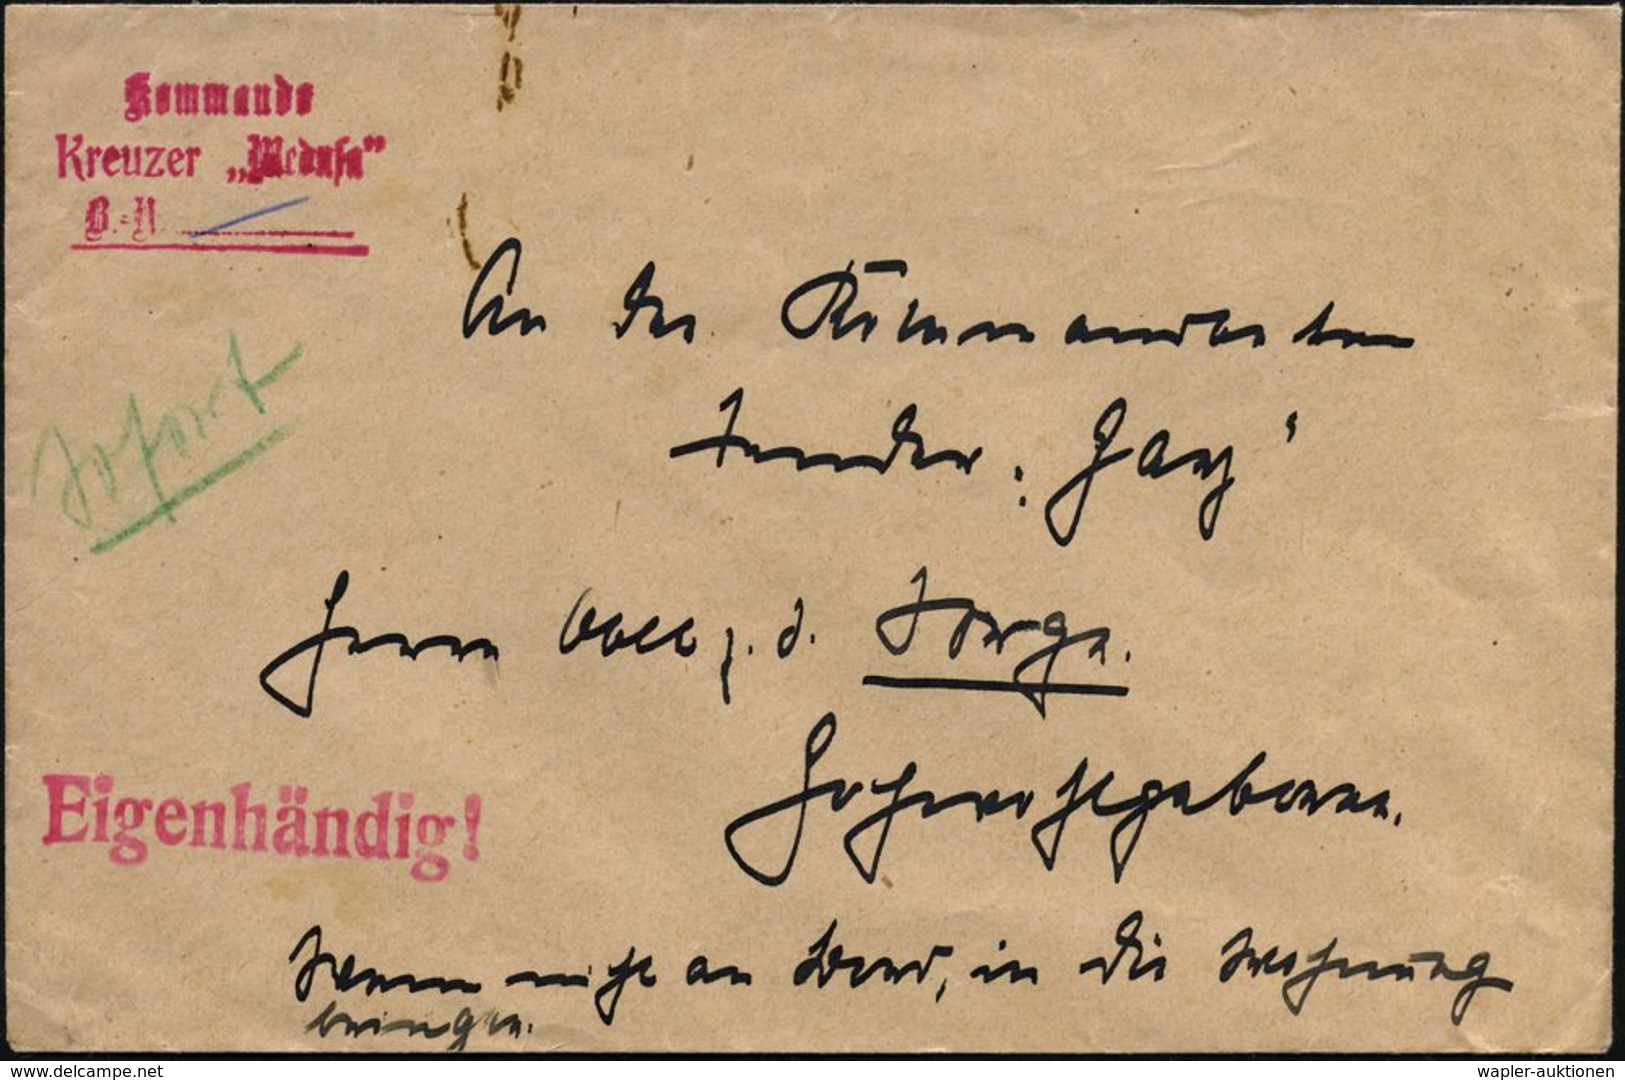 Kommando
Kreuzer „Medusa”
B.-N.
Sofort
An den Kommandanten
Tender „Harz“
Herrn z. d. Sorge.
Eigenhändig!
Hochwohlgeboren.
Wenn nicht an Bord, in die Wohnung
bringen.
delcampe.net
wapler-auktionen